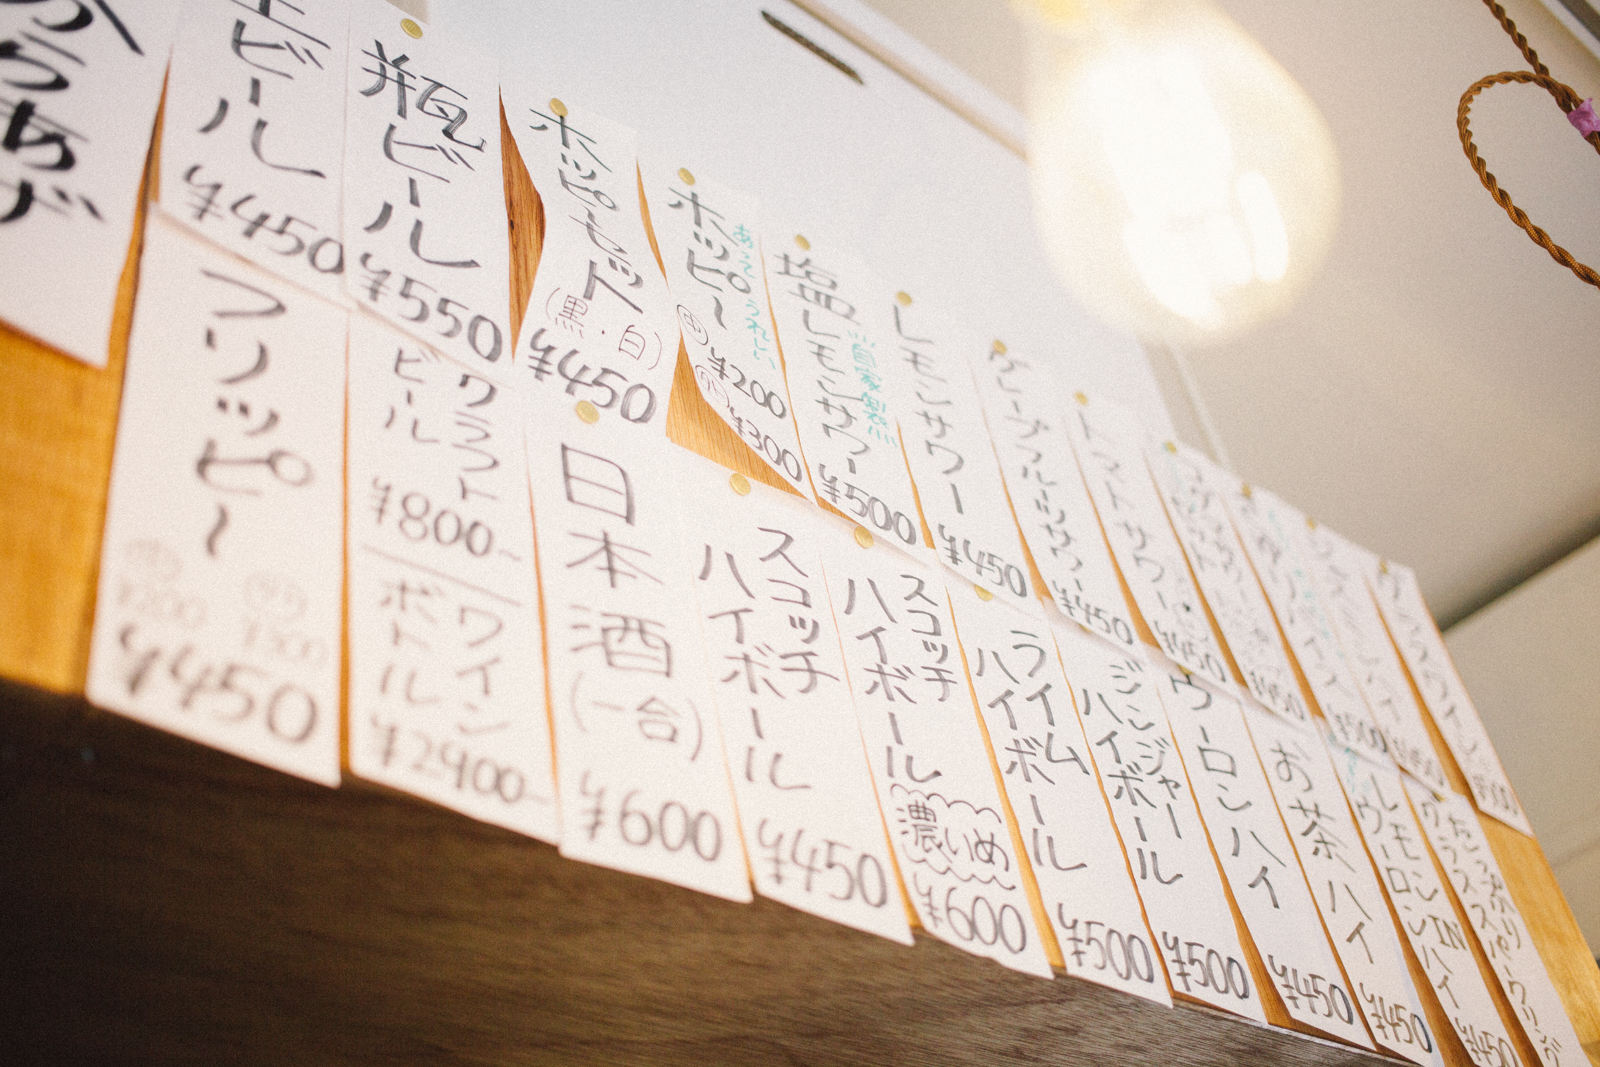 からあげ
生ビール
¥450
瓶ビール
¥550
ホッピーセット
(黒・白)
¥450
ホッピー
あったらうれしい
¥200
¥300
塩レモンサワー
自家製
¥500
レモンサワー
¥450
グレープフルーツサワー
¥450
トマトサワー
¥450
¥450
¥500
グラスワイン
¥500
フリッピー
¥200
¥300
¥450
クラフト
ビール
¥800~
ワイン
ボトル
¥2400~
日本酒
(一合)
¥600
スコッチ
ハイボール
¥450
スコッチ
ハイボール
濃いめ
¥600
ライム
ハイボール
¥500
ジンジャー
ハイボール
¥500
ウーロンハイ
¥450
お茶ハイ
¥450
レモンIN
ウーロンハイ
¥450
たっぷり
グラススパークリング